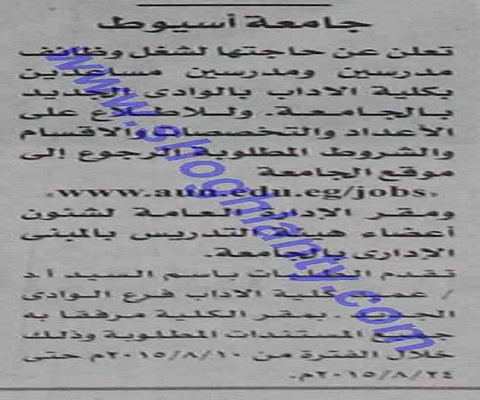 جامعة أسيوط
تعلن عن حاجتها لشغل وظائف
مدرسين ومدرسين مساعدين
بكلية الاداب بالوادى الجديد
بالجامعة. وللاطلاع على
الأعداد والتخصصات والاقسام
والشروط المطلوبة الرجوع إلى
موقع الجامعة
.www.aun.edu.eg/jobs.
ومقر الإدارة العامة لشئون
أعضاء هيئة التدريس بالمبنى
الإدارى بالجامعة.
تقدم الطلبات باسم السيد أ د
/ عميد كلية الاداب فرع الوادى
الجديد. بمقر الكلية مرفقا به
جميع المستندات المطلوبة وذلك
خلال الفترة من ٢٠١٥/٨/١٠م حتى
٢٠١٥/٨/٢٤م.
www.shoghanty.com